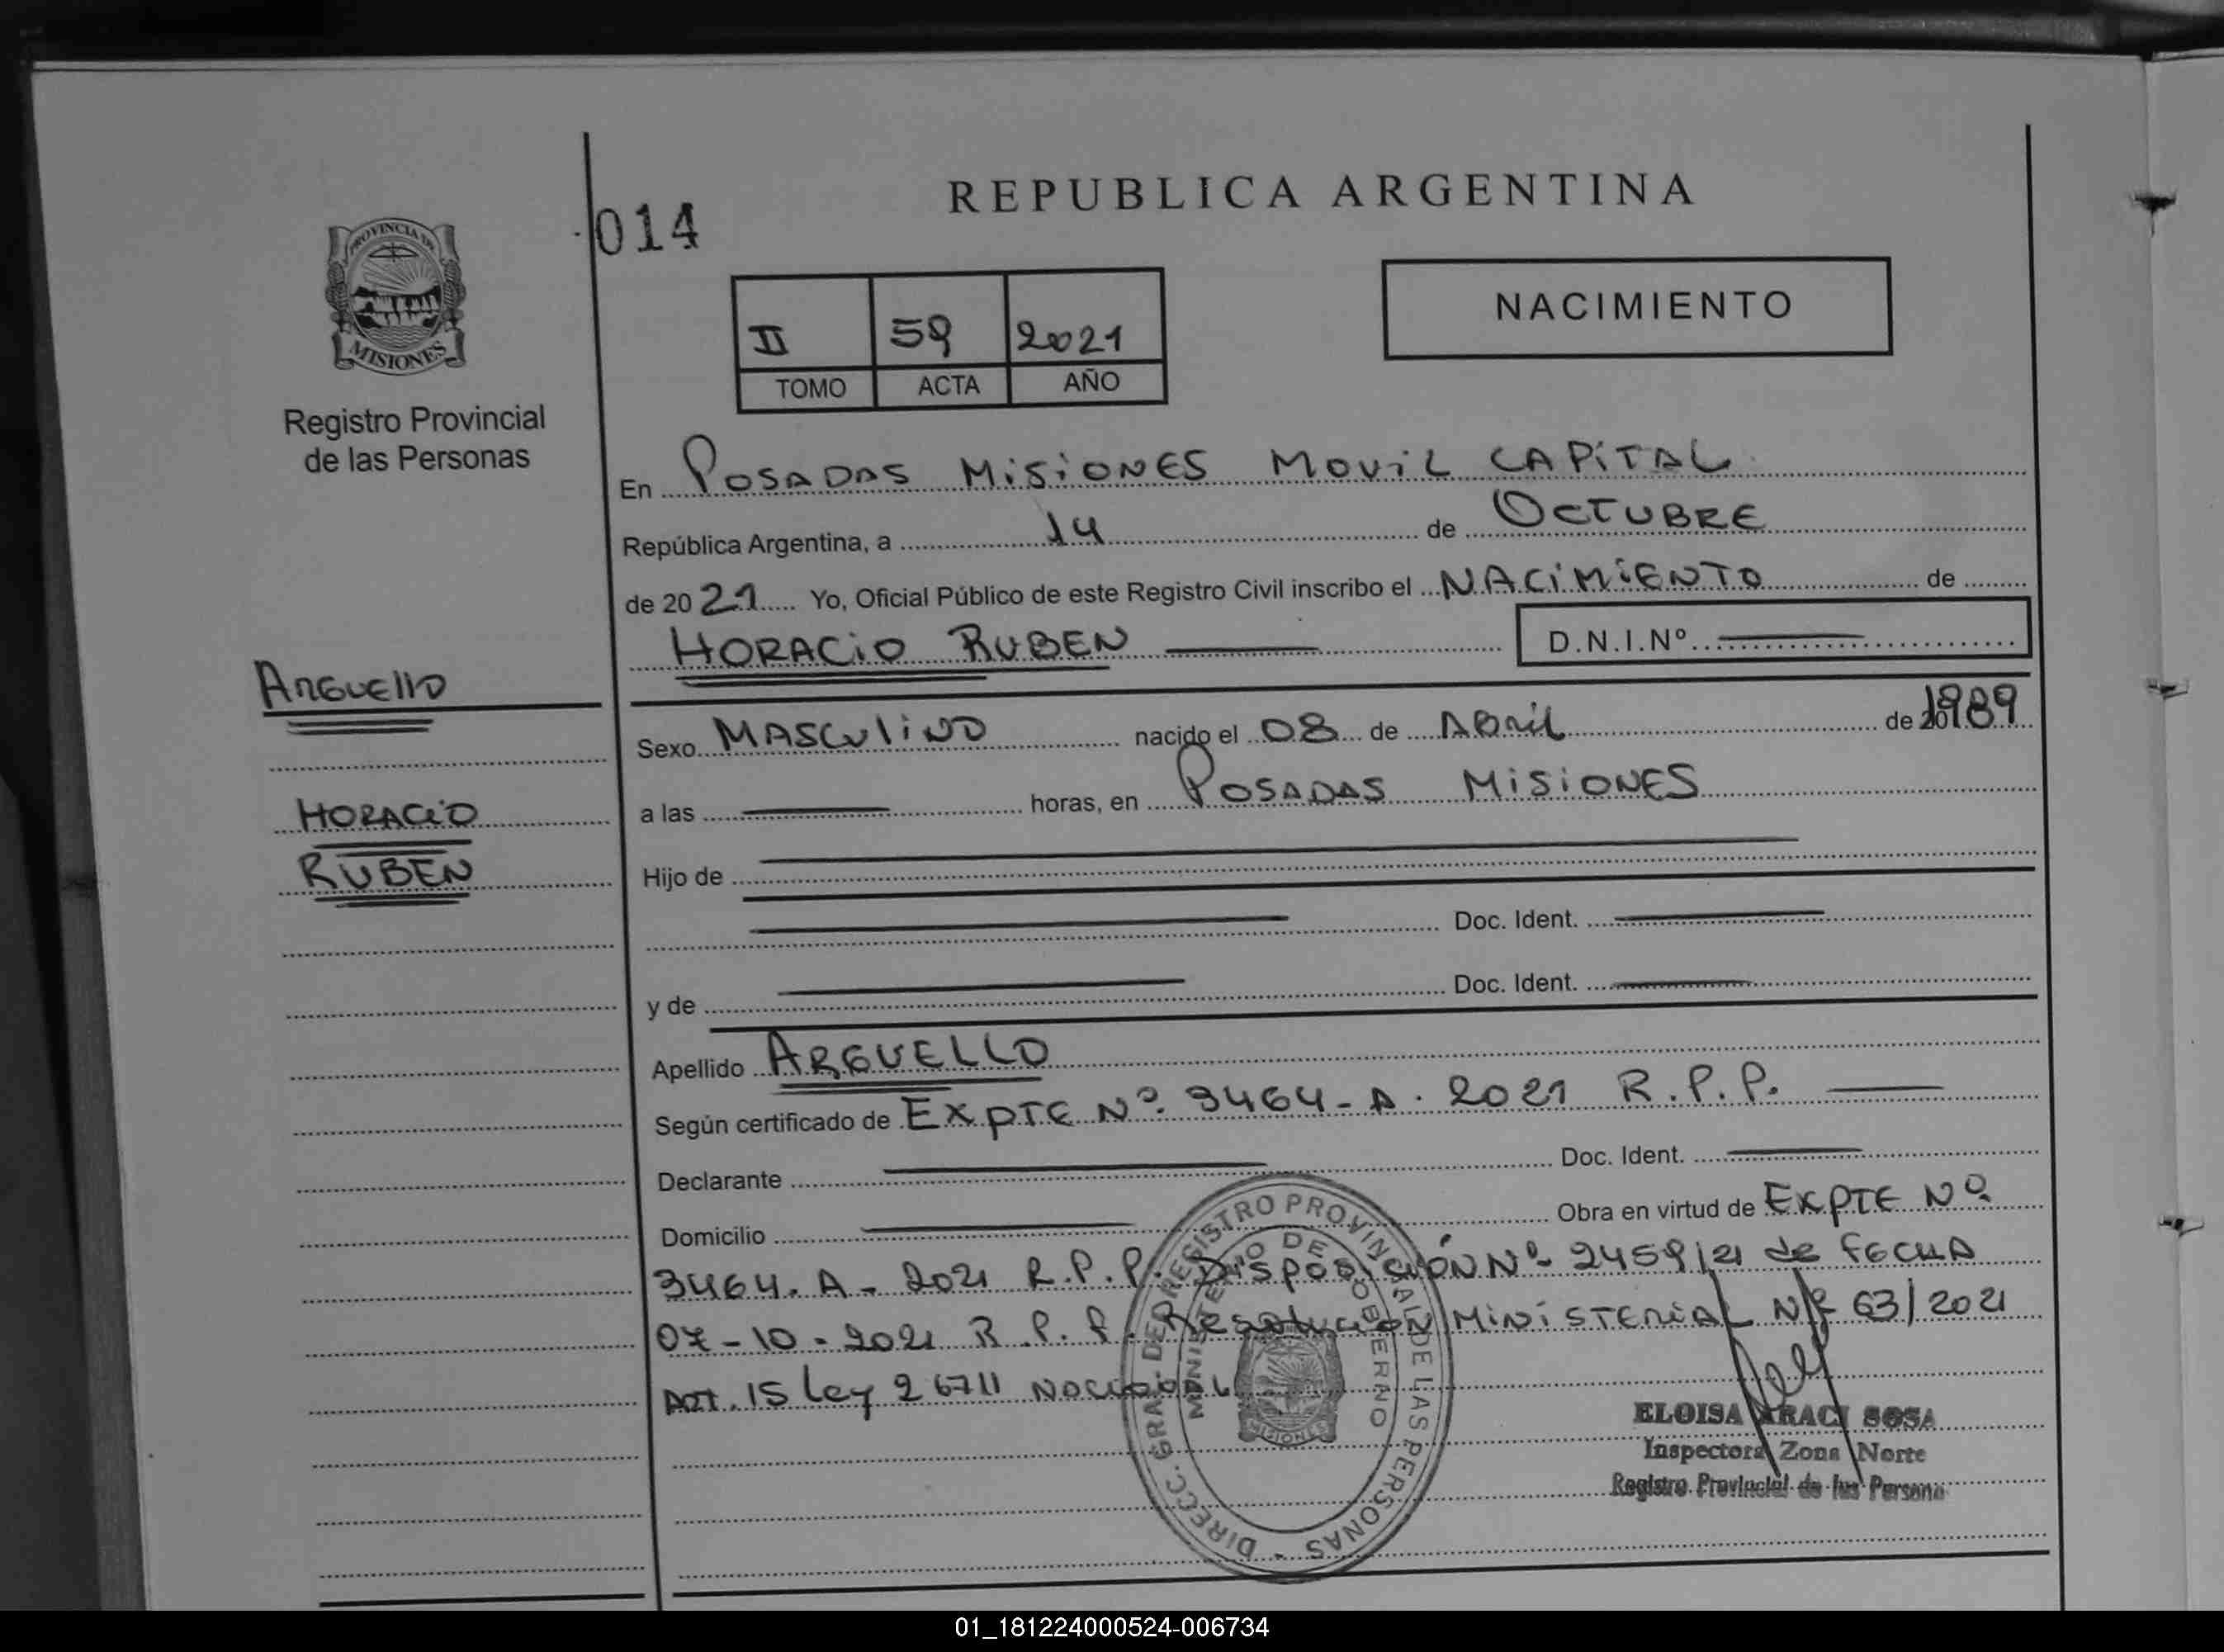 REPUBLICA ARGENTINA
014
PROVINCIA DE
MISIONES
Registro Provincial
de las Personas
II 59 2021
TOMO ACTA AÑO
NACIMIENTO
En POSADAS MiSiONES MOViL CAPiTAL
República Argentina, a 14 de OCTUBRE
de 2021 Yo, Oficial Público de este Registro Civil inscribo el NACiMiENTO de
HORACiO RUBEN D.N.I.Nº
ARGUEllO
Sexo MASCUliNO nacido el 08 de ABRiL de 1989
HORACiO
a las horas, en POSADAS MiSiONES
RUBEN
Hijo de
Doc. Ident.
y de Doc. Ident.
Apellido ARGUELLO
Según certificado de EXPTE Nº 3464-A. 2021 R.P.P.
Declarante Doc. Ident.
Domicilio Obra en virtud de EXPTE Nº
3464. A - 2021 R.P.P. DiSPOSiCiÓN Nº 2459/21 de FECHA
07-10-2021 R.P.P. Resolución MiNiSTERiAL Nº 63/2021
ART. 15 ley 26711 NACiONAL
DIRECC. GRAL. DEL REGISTRO PROVINCIAL DE LAS PERSONAS
MINISTERIO DE GOBIERNO
MISIONES
ELOISA ARACI SOSA
Inspectora Zona Norte
Registro Provincial de las Persona
01_181224000524-006734